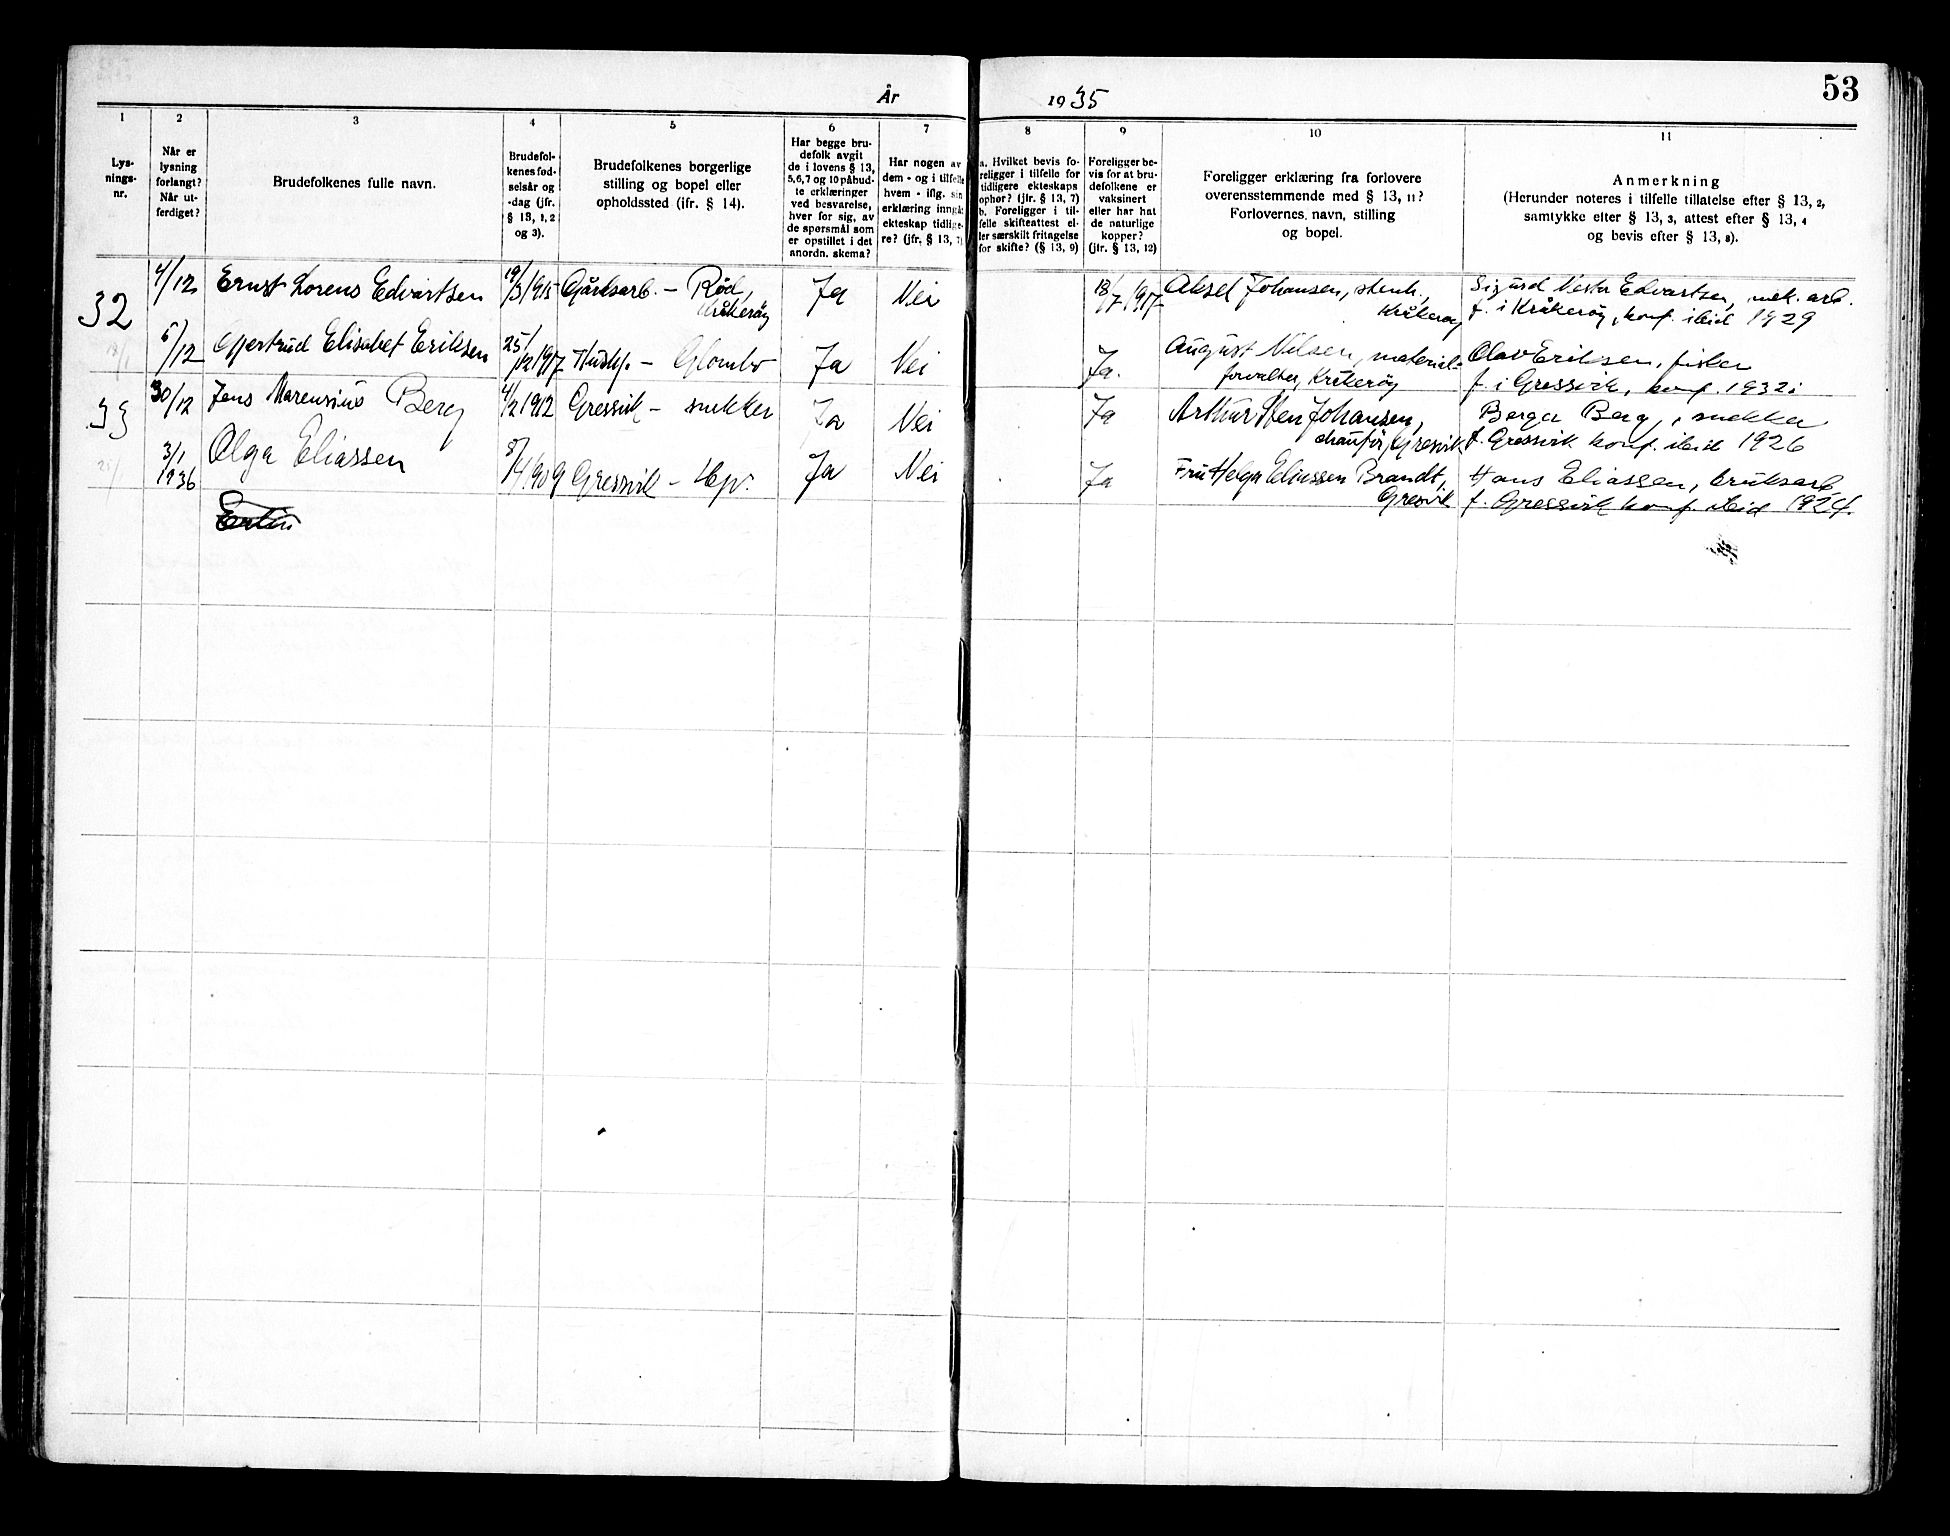 53
År 1935
1 2 3 4 5 6 7 8 9 10 11
Lys-
nings-
nr.
Når er
lysning
forlangt?
Når ut-
ferdiget?
Brudefolkenes fulle navn.
Brudefol-
kenes fød-
selsår og
-dag (jfr.
§ 13, 1, 2
og 3).
Brudefolkenes borgerlige
stilling og bopel eller
opholdssted (ifr. § 14).
Har begge bru-
defolk avgit
de i lovens § 13,
5,6,7 og 10 påbud-
te erklæringer
ved besvarelse,
hver for sig, av
de spørsmål som
er opstillet i det
anordn. skema?
Har nogen av
dem - og i tilfelle
hvem - iflg. sin
erklæring inngåt
ekteskap tidlige-
re? (jfr. § 13, 7)
a. Hvilket bevis fo-
religger i tilfelle for
tidligere ekteskaps
ophør? (jfr. § 13, 7)
b. Foreligger i til-
felle skifteattest el-
ler særskilt fritagelse
for skifte? (§ 13, 9)
Foreligger be-
vis for at bru-
defolkene er
vaksinert
eller har hat
de naturlige
kopper?
(jfr. § 13, 12)
Foreligger erklæring fra forlovere
overensstemmende med § 13, 11?
Forlovernes navn, stilling
og bopel.
Anmerkning
(Herunder noteres i tilfelle tillatelse efter § 13, 2,
samtykke efter § 13, 3, attest efter § 13, 4
og bevis efter § 13, 8).
32
4/12 Ernst Lorens Edvartsen 19/3 1915 Gårdsarb. – Rød, Kråkerøy Ja Nei 18/7 1917 Aksel Johansen, stenh., Kråkerøy Sigurd Edvartsen, mek. arb.
f. i Kråkerøy, konf. ibid 1929
5/12 Gjertrud Elisabet Eriksen 25/12 1917 Hush. – Glombo Ja Nei Ja. August Nilsen, material-
forvalter, Kråkerøy Olav Eriksen, fisker
f. i Gressvik, konf. 1932
33
30/12 Jens Marensius Berg 4/2 1912 Gressvik – snekker Ja Nei Ja Arthur Sten Johansen,
chaufför, Gresvik Berger Berg, snekker
f. Gressvik konf. ibid 1926
3/1
1936 Olga Eliassen 8/4 1909 Gressvik – Hp. Ja Nei Ja Fru Helga Eliassen Brandt,
Gresvik Hans Eliassen, bruksarb.
f. Gressvik konf. ibid 1924.